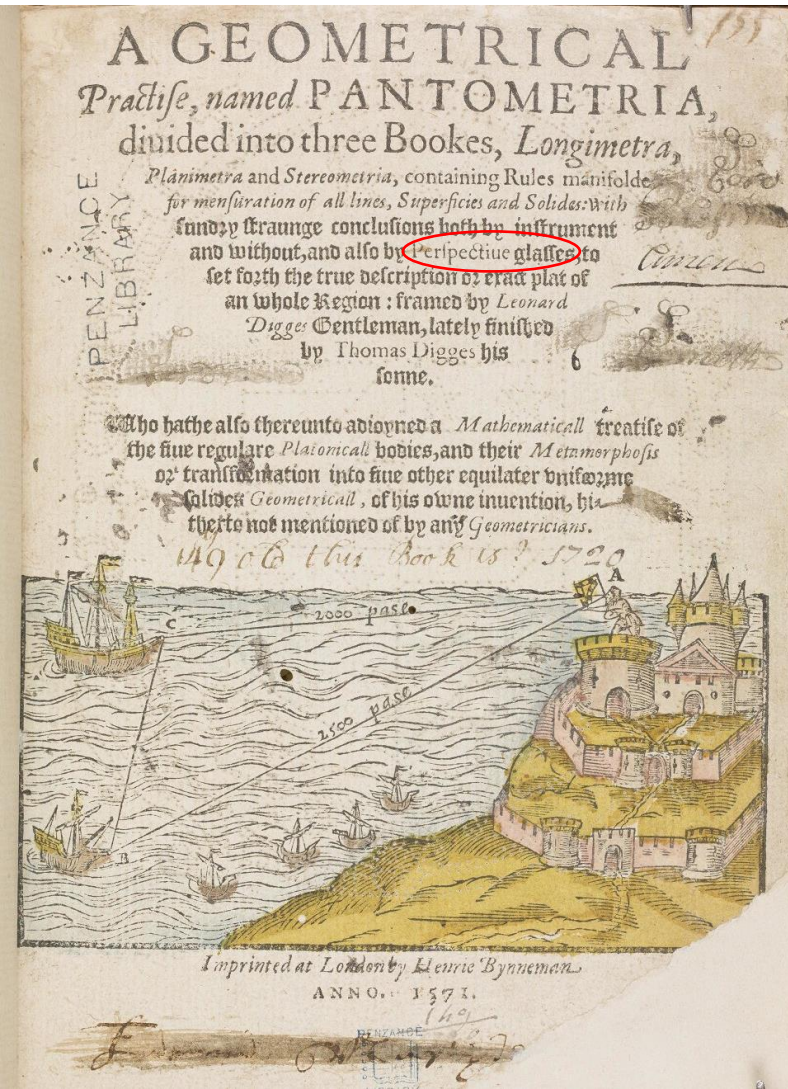 A GEOMETRICAL
Practiſe, named PANTOMETRIA,
diuided into three Bookes, Longimetra,
Planimetra and Stereometria, containing Rules manifolde
for menſuration of all lines, Superficies and Solides: with
ſundry ſtraunge concluſions both by inſtrument
and without, and also by Perſpectiue glaſſes, to
ſet forth the true deſcription or exact plat of
an whole Region: framed by Leonard
Digges Gentleman, lately finiſhed
by Thomas Digges his
ſonne.
Who hathe alſo thereunto adioyned a Mathematicall treatiſe of
the fiue regulare Platonicall bodies, and their Metamorphoſis
or tranſformation into fiue other equilater vniforme
ſolides Geometricall, of his owne inuention, hi-
therto not mentioned of by any Geometricians.
149 old this Book is? 1720
A
C
2000 paſe
2500 paſe
B
Imprinted at London by Henrie Bynneman
ANNO. 1571.
149
155
Amen
PENZANCE
LIBRARY
PENZANCE